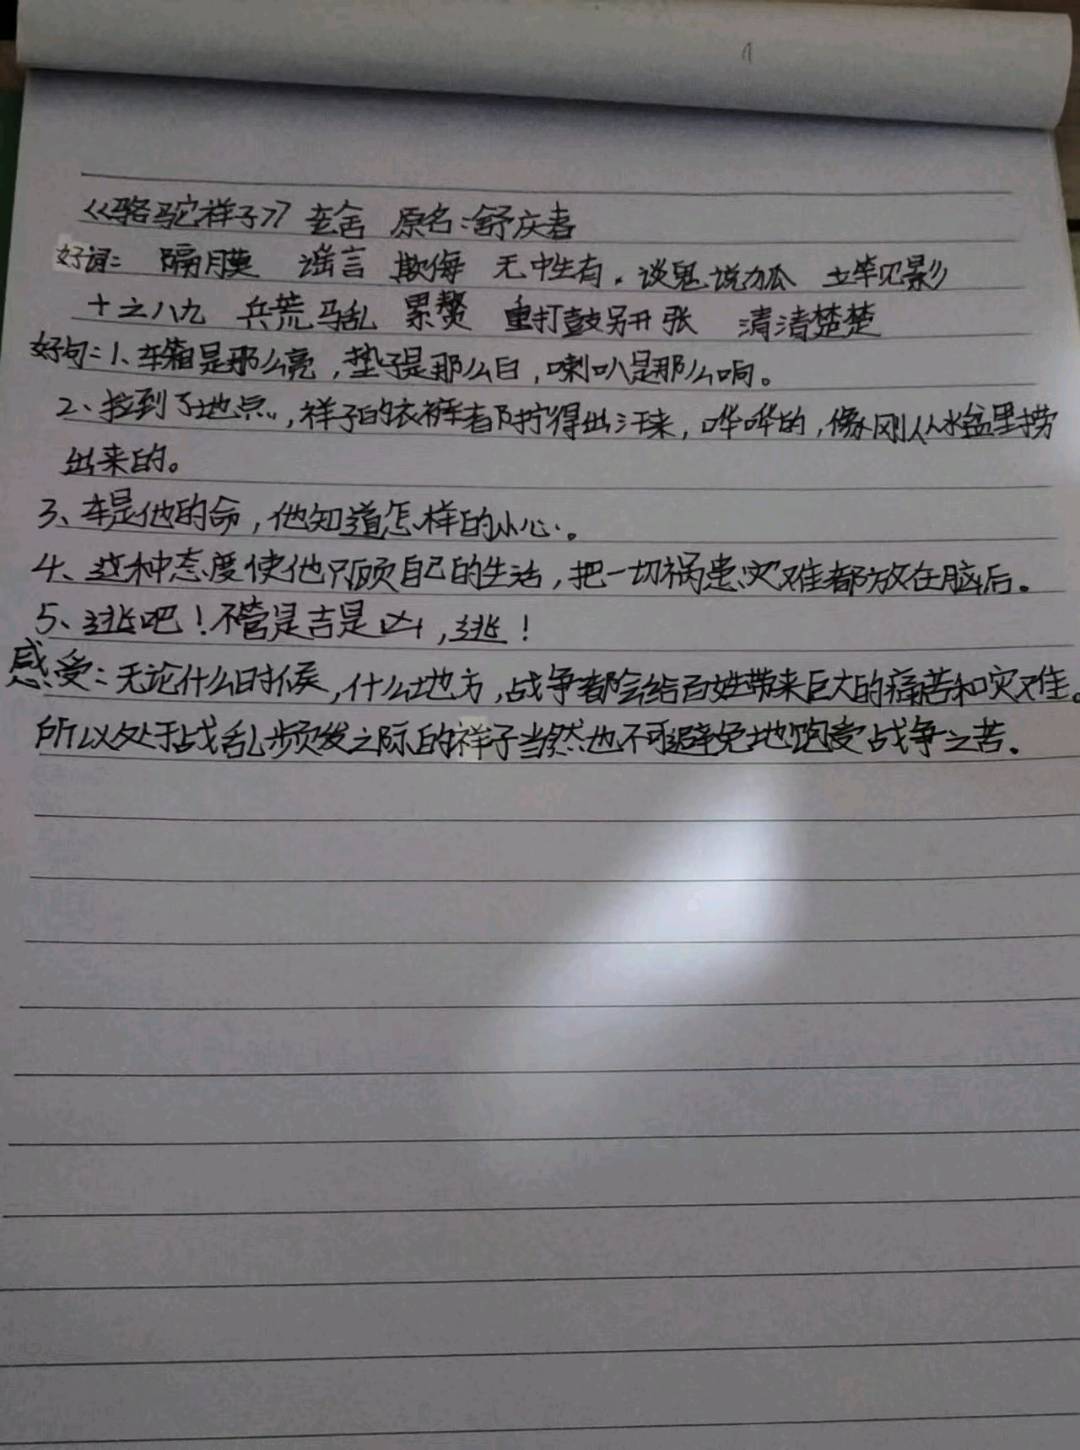 《骆驼祥子》 老舍 原名:舒庆春
好词: 隔膜 谣言 欺侮 无中生有. 谈鬼说狐 立竿见影
十之八九 兵荒马乱 累赘 重打鼓另开张 清清楚楚
好句:1、车箱是那么亮,垫子是那么白,喇叭是那么响。
2、拉到了地点,祥子的衣裤都拧得出汗来,哗哗的,像刚从水盆里捞
出来的。
3、车是他的命,他知道怎样的小心。
4、这种态度使他只顾自己的生活,把一切祸患灾难都放在脑后。
5、逃吧!不管是吉是凶,逃!
感受:无论什么时候,什么地方,战争都会给百姓带来巨大的痛苦和灾难。
所以处于战乱频发之际的祥子当然也不可避免地饱受战争之苦.